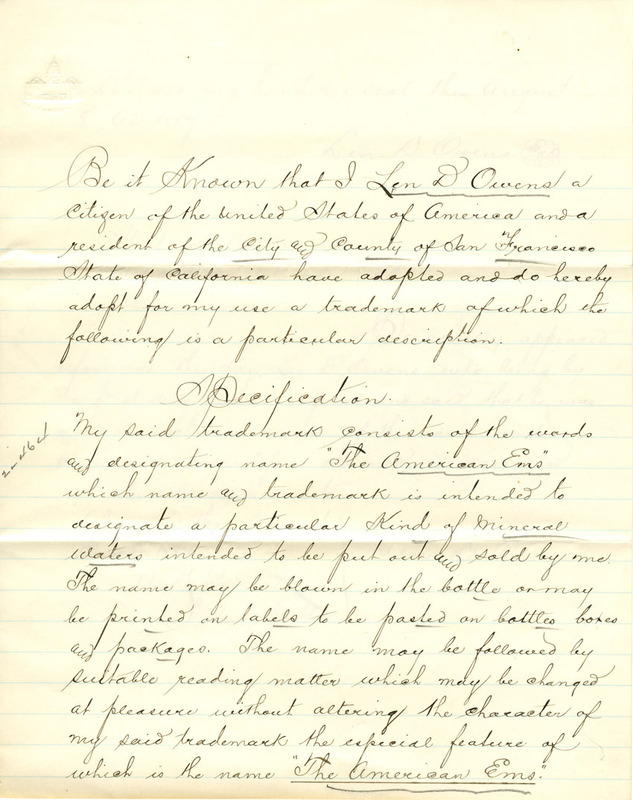 Be it Known that I Len D Owens a
Citizen of the United States of America and a
resident of the City and County of San Francisco
State of California have adopted and do hereby
adopt for my use a trademark of which the
following is a particular description.
Specification.
My said trademark consists of the words
and designating name "The American Ems"
which name and trademark is intended to
designate a particular Kind of Mineral
waters intended to be put out and sold by me.
The name may be blown in the bottle or may
be printed on labels to be pasted on bottles boxes
and packages. The name may be followed by
suitable reading matter which may be changed
at pleasure without altering the character of
my said trademark the especial feature of
which is the name "The American Ems".